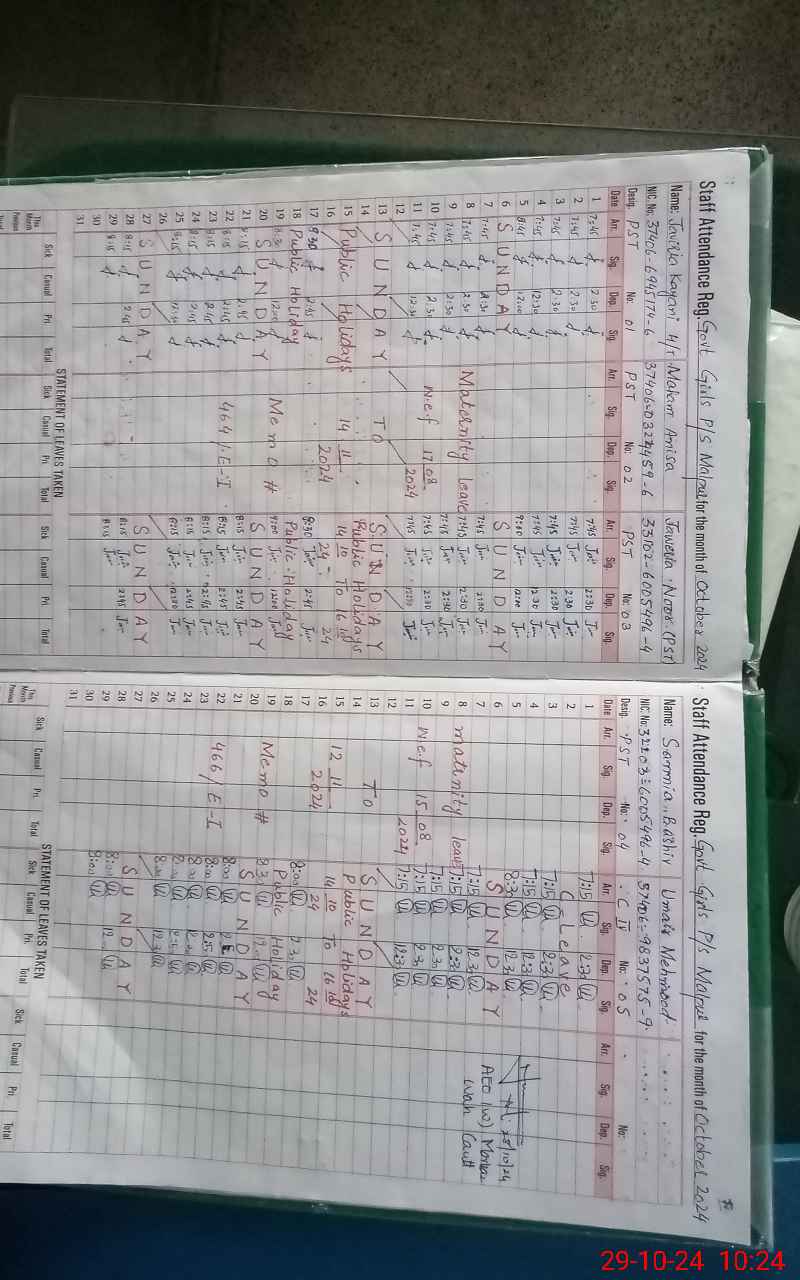 Staff Attendance Reg. Govt Girls P/S Malpur for the month of October 2024
Name: Javeria Kayani H/T Makam Anisa Jaweria Noor (PST)
NIC. No. 37406-6945174-6 33102-6005496-4
Desig. PST No: 01 PST No: 02 PST No: 03
Date Arr. Sig. Dep. Sig. Arr. Sig. Dep. Sig. Arr. Sig. Dep. Sig.
1 7:45 2:30 7:45 2:30
2 7:45 2:30 7:45 2:30
3 7:45 2:30 7:45 2:30
4 7:45 12:30 7:45 12:30
5 8:45 12:00 9:00 12:00
6 SUNDAY SUNDAY
7 7:45 2:30 7:45 2:30
8 7:45 2:30 Maternity leave 7:45 2:30
9 7:45 2:30 7:45 2:30
10 7:45 2:30 W.e.f 17 08 7:45 2:30
11 7:45 12:30 2024 7:45 12:30
12
13 SUNDAY TO SUNDAY
14 Public Holidays
15 Public Holidays 14 11 14 10 TO 16 10
16 2024 24 24
17 8:30 2:45 8:30 2:45
18 Public Holiday Public Holiday
19 8:30 12:00 Memo # 9:00 12:00
20 SUNDAY SUNDAY
21 8:15 2:45 8:15 2:45
22 8:15 2:45 464/E-I 8:15 2:45
23 8:15 2:45 8:15 2:45
24 8:15 2:45 8:15 2:45
25 8:15 12:30 8:15 12:30
26
27 SUNDAY SUNDAY
28 8:15 2:45 8:15 2:45
29 8:15 8:15
30
31
STATEMENT OF LEAVES TAKEN
Sick Casual Pri. Total Sick Casual Pri. Total Sick Casual Pri. Total
This Month
Previous
Staff Attendance Reg. Govt Girls P/s Malpur for the month of October 2024
Name: Sammia Bashir Umair Mehmood
NIC. No. 32203-6005496-4 37406-9837575-9
Desig. PST No: 04 C IV No: 05 No:
Date Arr. Sig. Dep. Sig. Arr. Sig. Dep. Sig. Arr. Sig. Dep. Sig.
1 7:15 2:30
2 C. Leave
3 7:15 2:30
4 7:15 12:30
5 8:30 12:30
6 SUNDAY
7 7:15 12:30
8 maternity leave 7:15 2:30
9 7:15 2:30
10 W.e.f 15 08 7:15 2:30
11 2024 7:15 12:30
12
13 TO SUNDAY
14 Public Holidays
15 12 11 14 10 TO 16 10
16 2024 24 24
17 8:00 2:30
18 Public Holiday
19 Memo # 8:30 12:00
20 SUNDAY
21 8:00
22 466/E-I 8:00
23 8:00
24 8:00
25 8:00 12:30
26
27 SUNDAY
28 8:00
29
30
31
25/10/24
AEO (W) Markaz
Wah Cantt
STATEMENT OF LEAVES TAKEN
Sick Casual Pri. Total Sick Casual Pri. Total Sick Casual Pri. Total
This Month
Previous
29-10-24 10:24